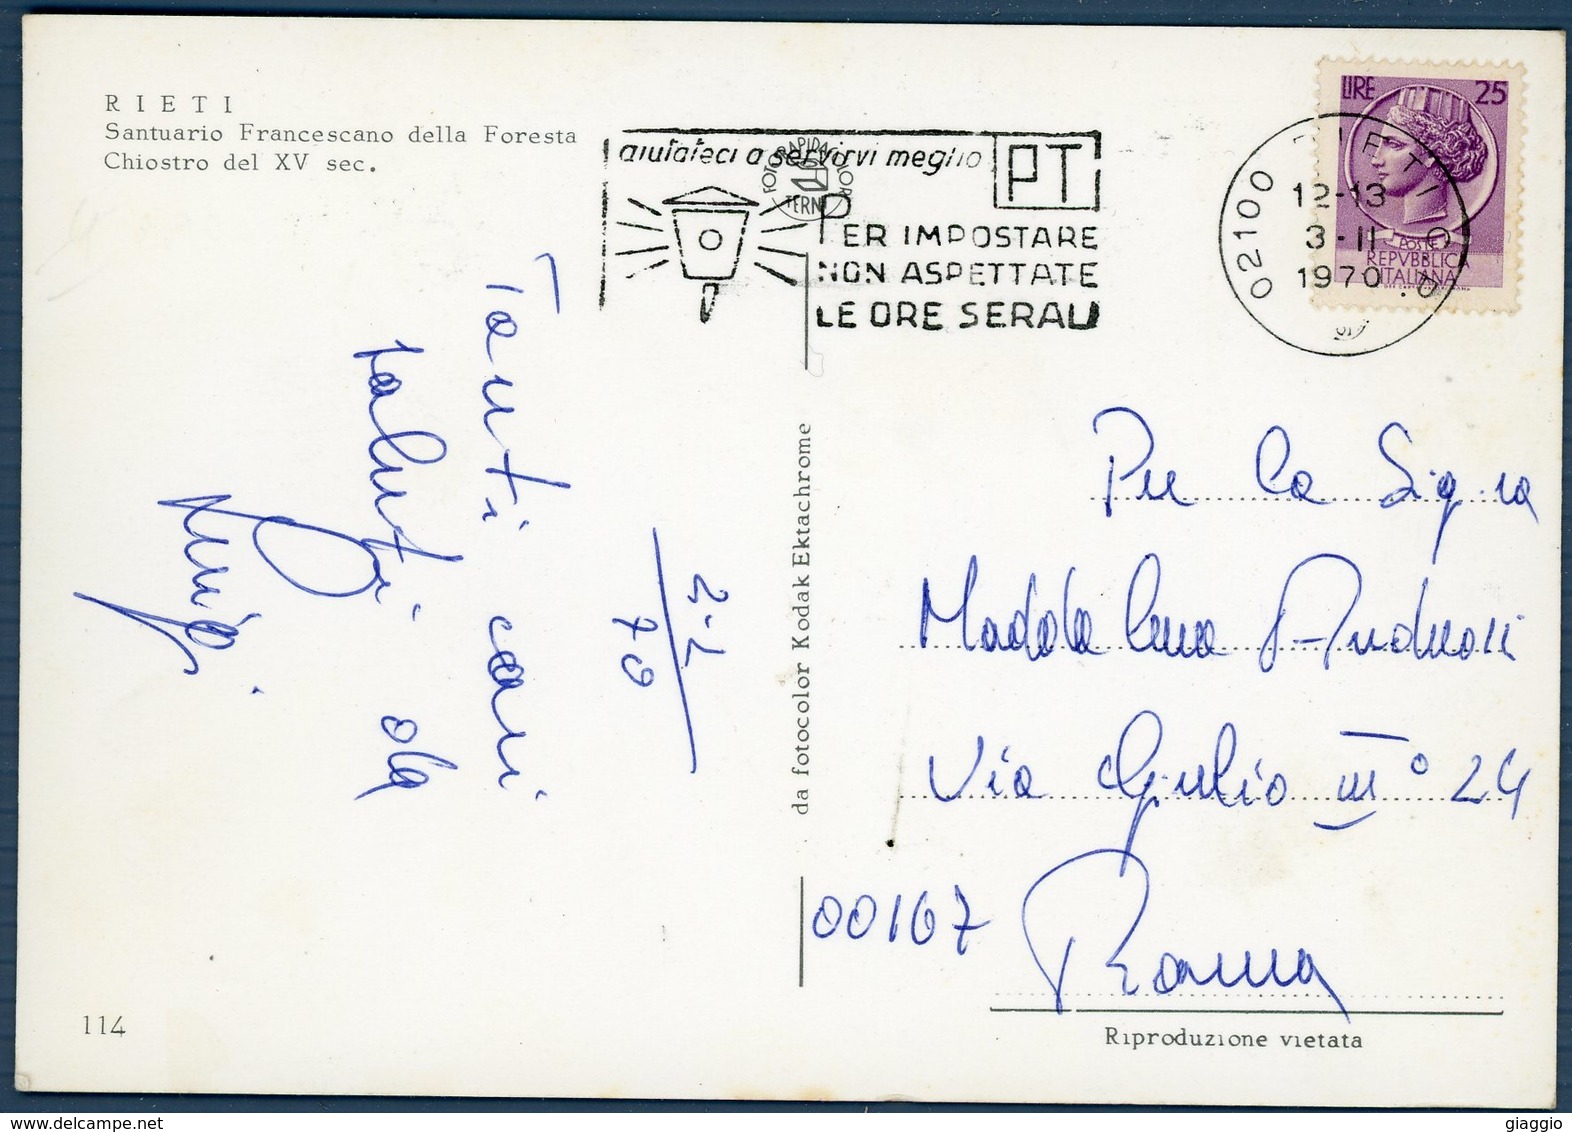 RIETI
Santuario Francescano della Foresta
Chiostro del XV sec.
aiutateci a servirvi meglio
PT
PER IMPOSTARE
NON ASPETTATE
LE ORE SERALI
FOTORAPIDACOLOR
TERNI
02100 RIETI
12-13
3-II
1970
LIRE 25
POSTE
REPVBBLICA
ITALIANA
Tanti cari
saluti da
Luigi
2-2
70
da fotocolor Kodak Ektachrome
Per la Sig.ra
Maddalena
Via Giulio III° 24
00167 Roma
Riproduzione vietata
114
giaggio